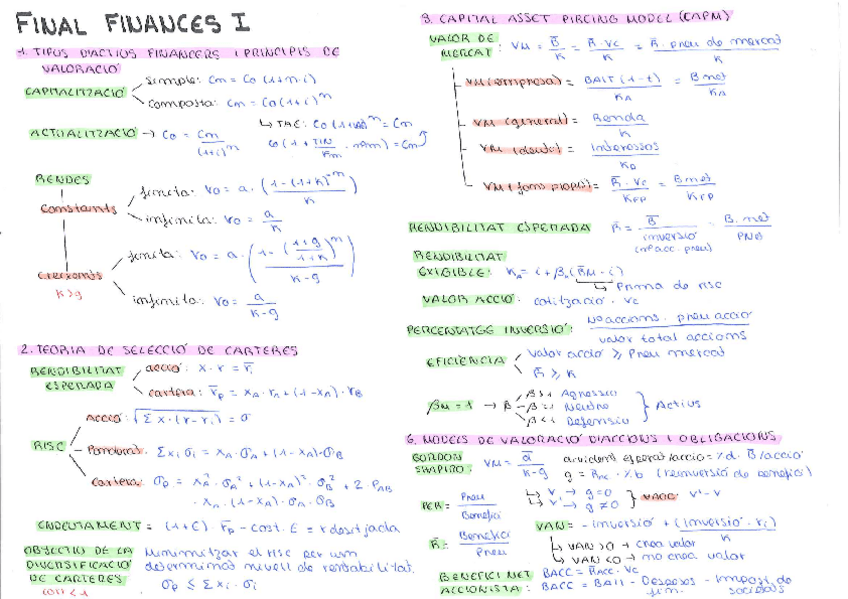 FINAL FINANCES I
1. TIPUS D'ACTIUS FINANCERS I PRINCIPIS DE VALORACIÓ
CAPITALITZACIÓ
simple: Cm = Co (1+m·i)
composta: Cm = Co (1+i)^m
ACTUALITZACIÓ → Co = Cm / (1+i)^m
RENDES
Constants
finita: Vo = a · (1-(1+K)^-m / K)
infinita: Vo = a / K
Creixents
K>g
finita: Vo = a · (1-((1+g)/(1+K))^m / K-g)
infinita: Vo = a / K-g
2. TEORIA DE SELECCIÓ DE CARTERES
RENDIBILITAT ESPERADA
acció: x · r = r̄i
cartera: r̄p = XA · rA + (1-XA) · rB
RISC
Acció: √Σ x·(r-ri) = σ
Ponderat: Σxi σi = XA · σA + (1-XA) · σB
Cartera: σp = XA² · σA² + (1-XA)² · σB² + 2 · PAB
· XA · (1-XA) · σA · σB
ENDEUTAMENT = (1+E) · r̄p - cost · E = r desitjada
OBJECTIU DE LA DIVERSIFICACIÓ DE CARTERES
Minimitzar el risc per un
determinat nivell de rentabilitat.
σp ≤ Σxi · σi
3. CAPITAL ASSET PIRCING MODEL (CAPM)
VALOR DE MERCAT: VM = B̄ / K = R̄ · Vc / K = R̄ · preu de mercat / K
VM (empresa) = BAIT (1-t) / KA = B net / KA
VM (general) = Renda / K
VM (deute) = Interessos / KD
VM (fons propis) = R̄ · Vc / KFP = B net / KFP
RENDIBILITAT ESPERADA R̄ = B̄ / inversió = B. net / PNB
RENDIBILITAT EXIGIBLE: KA = i + β · (R̄M - i)
Prima de risc
VALOR ACCIÓ: cotització · Vc
PERCENTATGE INVERSIÓ: No accions · preu acció / valor total accions
EFICIÈNCIA
valor acció ≥ Preu mercat
R̄ ≥ K
βM = 1 → β
β>1 → Agressiu
β=1 → Neutre
β<1 → Defensiu
Actius
6. MODELS DE VALORACIÓ D'ACCIONS I OBLIGACIONS
GORDON SHAPIRO: VM = d̄ / K-g
g = RNC · %b (reinversió de benefici)
V1 → g=0
V → g≠0
VACC V'-V
PER = Preu / Benefici
R̄ = Benefici / Preu
VAN = - inversió + (inversió · ri) / K
VAN>0 → crea valor
VAN<0 → no crea valor
BENEFICI NET ACCIONISTA:
BACC = R̄ACC · Vc
BACC = BAII - Despeses fin. - Impost de societats